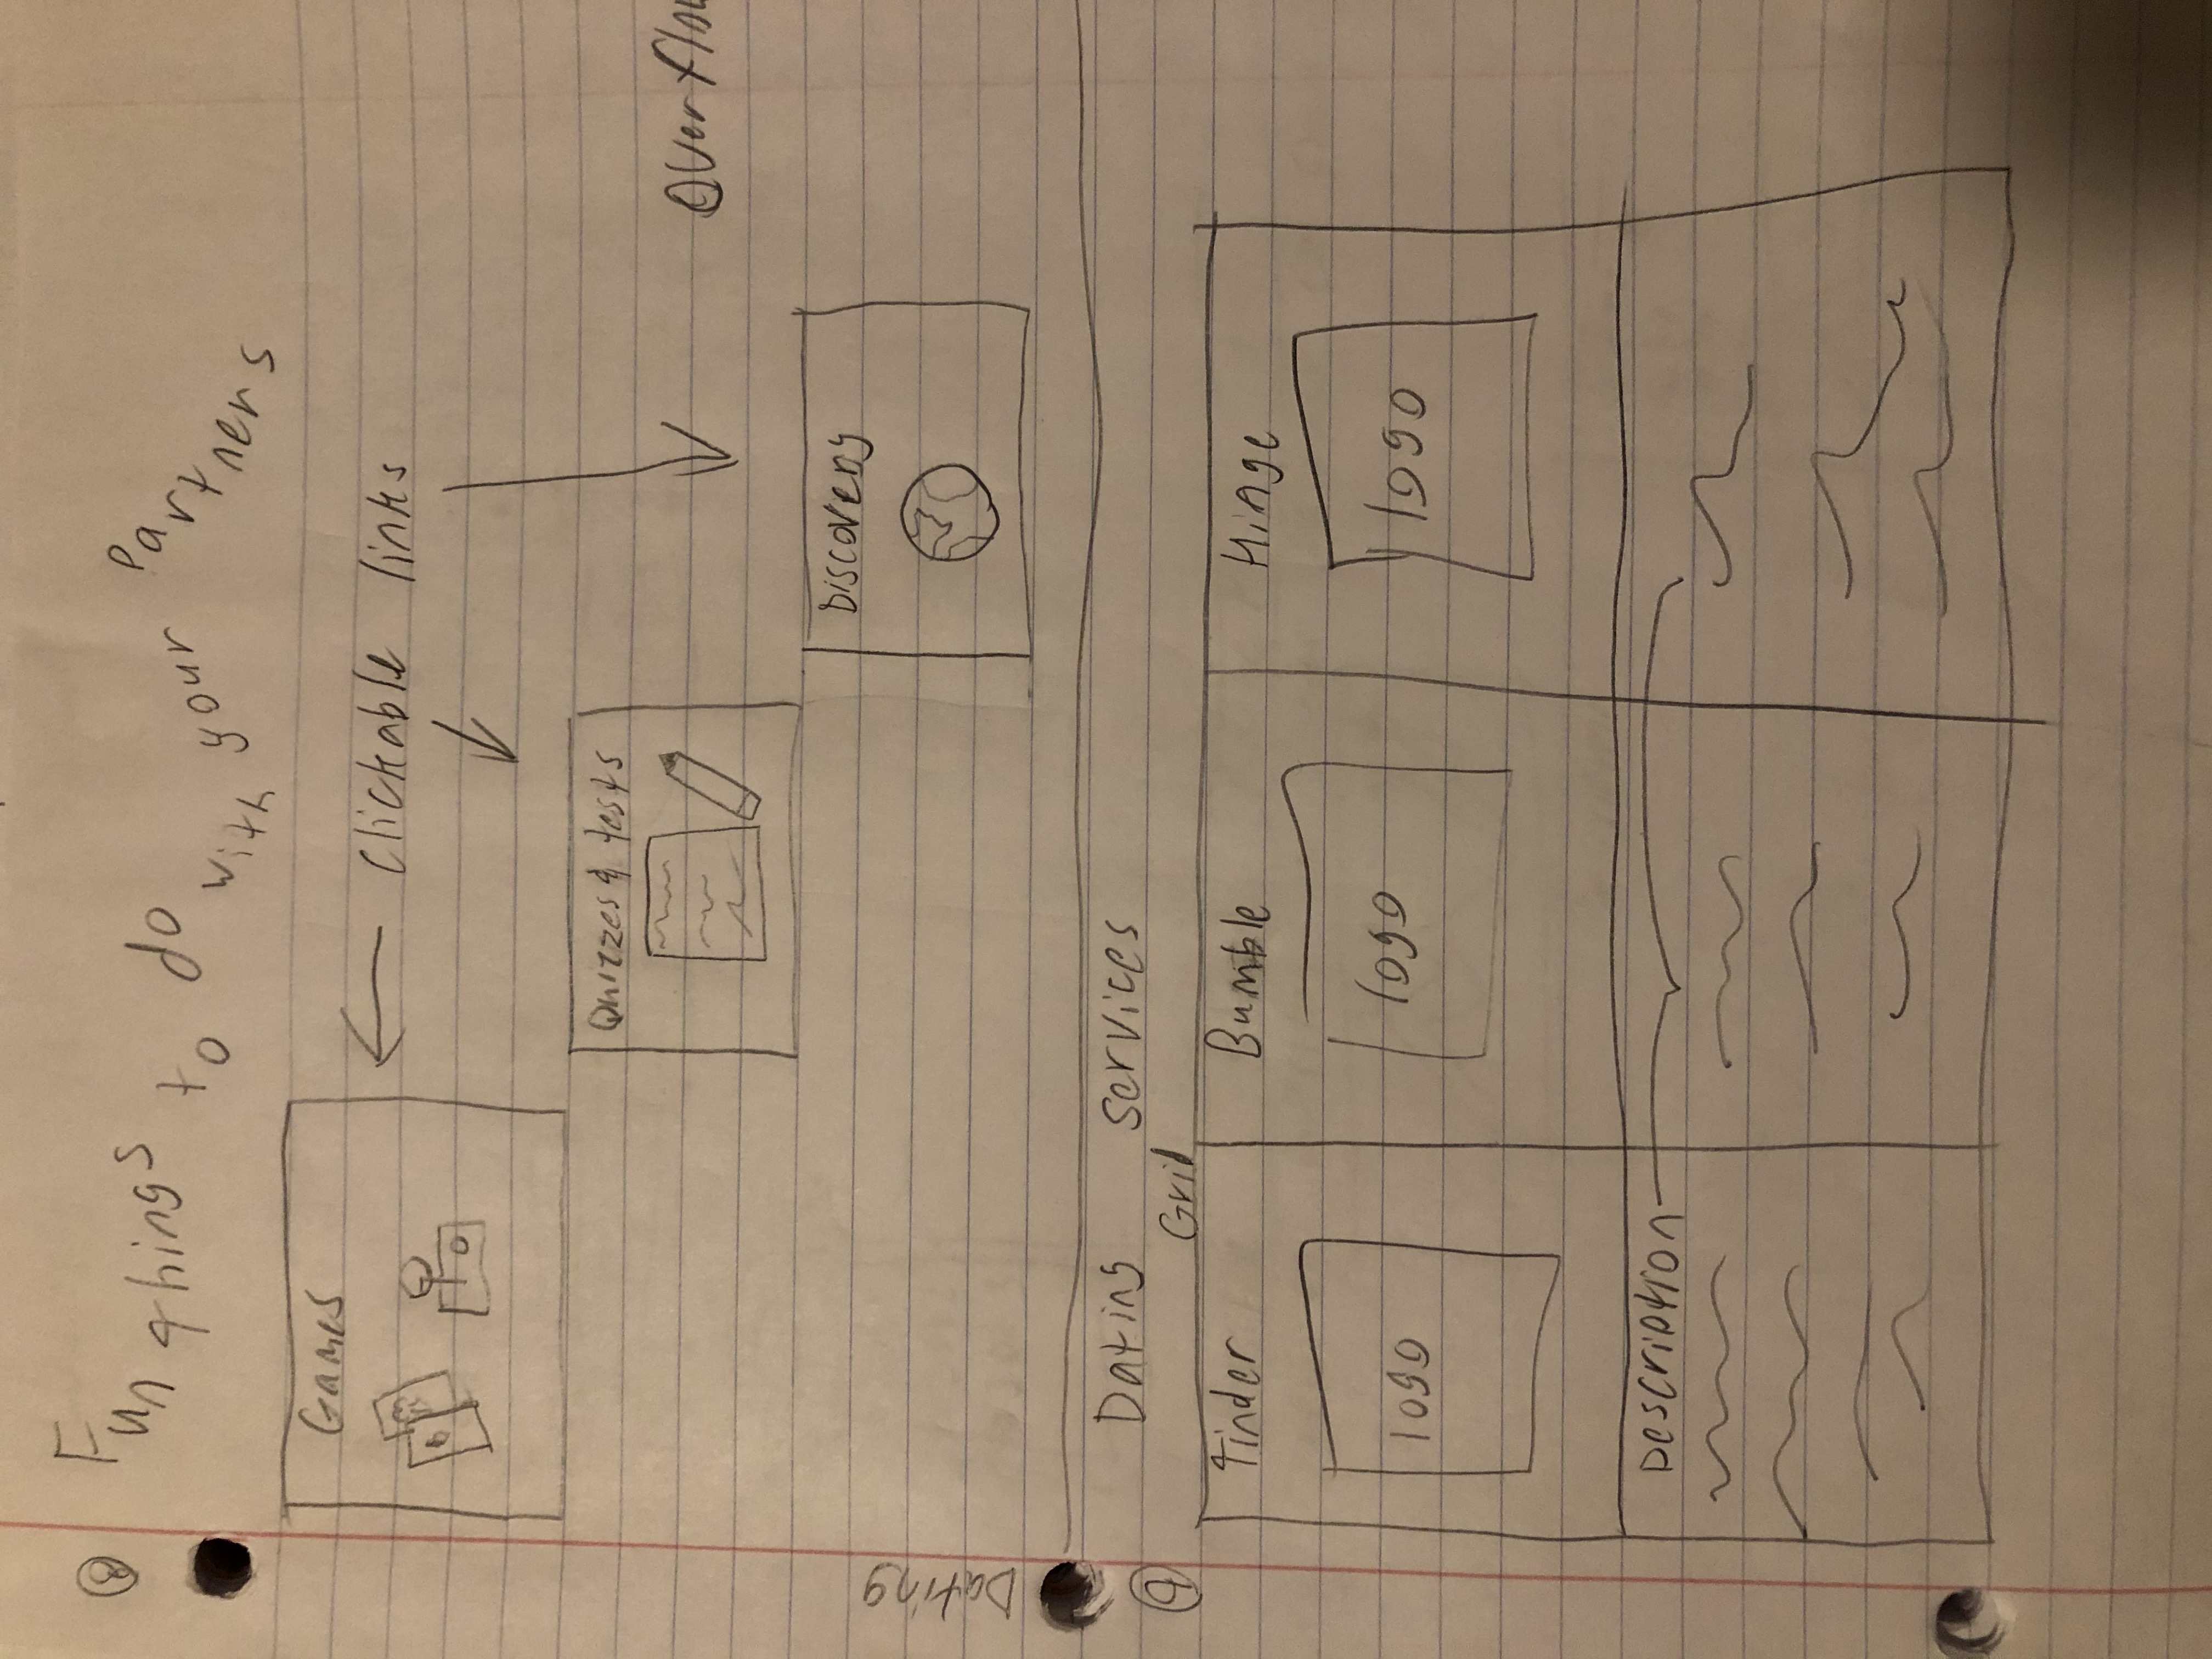 8
Fun things to do with your Partners
Games
Clickable links
Quizzes & tests
Overflow
Discovery
Dating
9
Dating services
Grid
Tinder
Bumble
Hinge
logo
logo
logo
Description